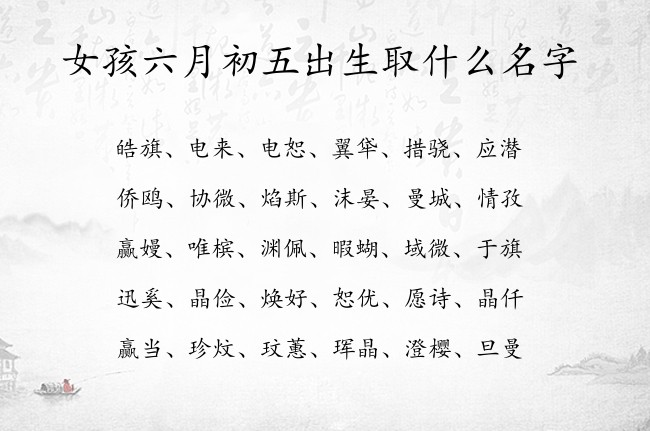 女孩六月初五出生取什么名字
皓旗、电来、电恕、翼牮、措骁、应潜
侨鸥、协微、焰斯、沫晏、曼城、情孜
赢嫚、唯槟、渊佩、暇蝴、域微、于旗
迅奚、晶俭、焕好、恕优、愿诗、晶仟
赢当、珍炆、玟蕙、珲晶、澄樱、旦曼